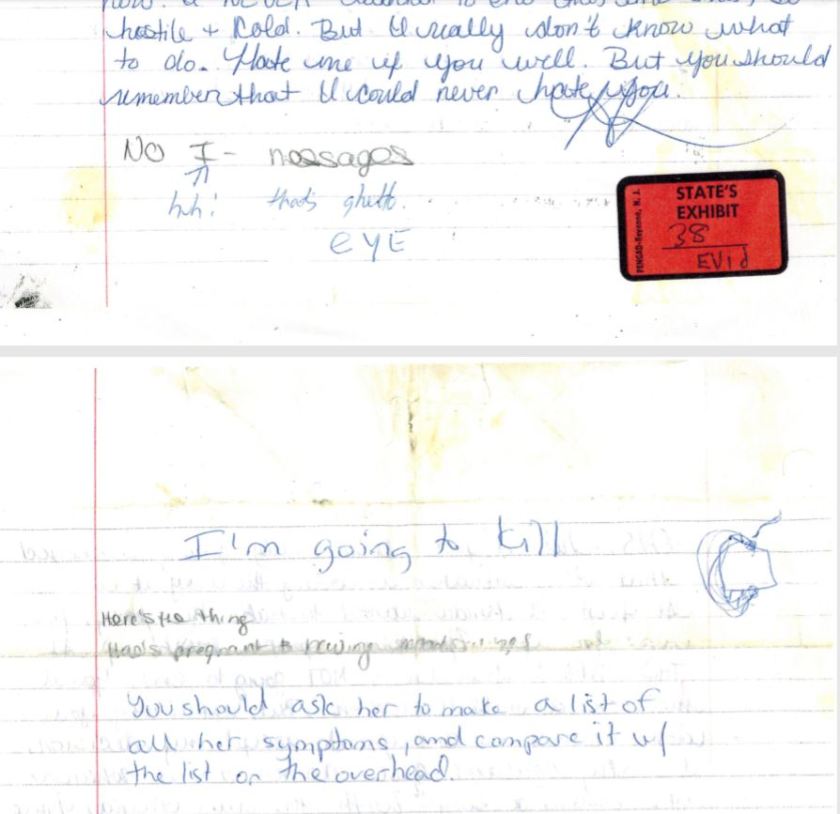 now. I NEVER to end this
hostile + cold. But I really don't know what
to do. Hate me if you will. But you should
remember that I could never hate you.
NO I- messages
huh? that's ghett.
EYE
STATE'S
EXHIBIT
38
EVid
PENGAD-Bayonne, N. J.
I'm going to kill
Here's the thing
pregnant &
You should ask her to make a list of
all her symptoms, and compare it w/
the list on the overhead.